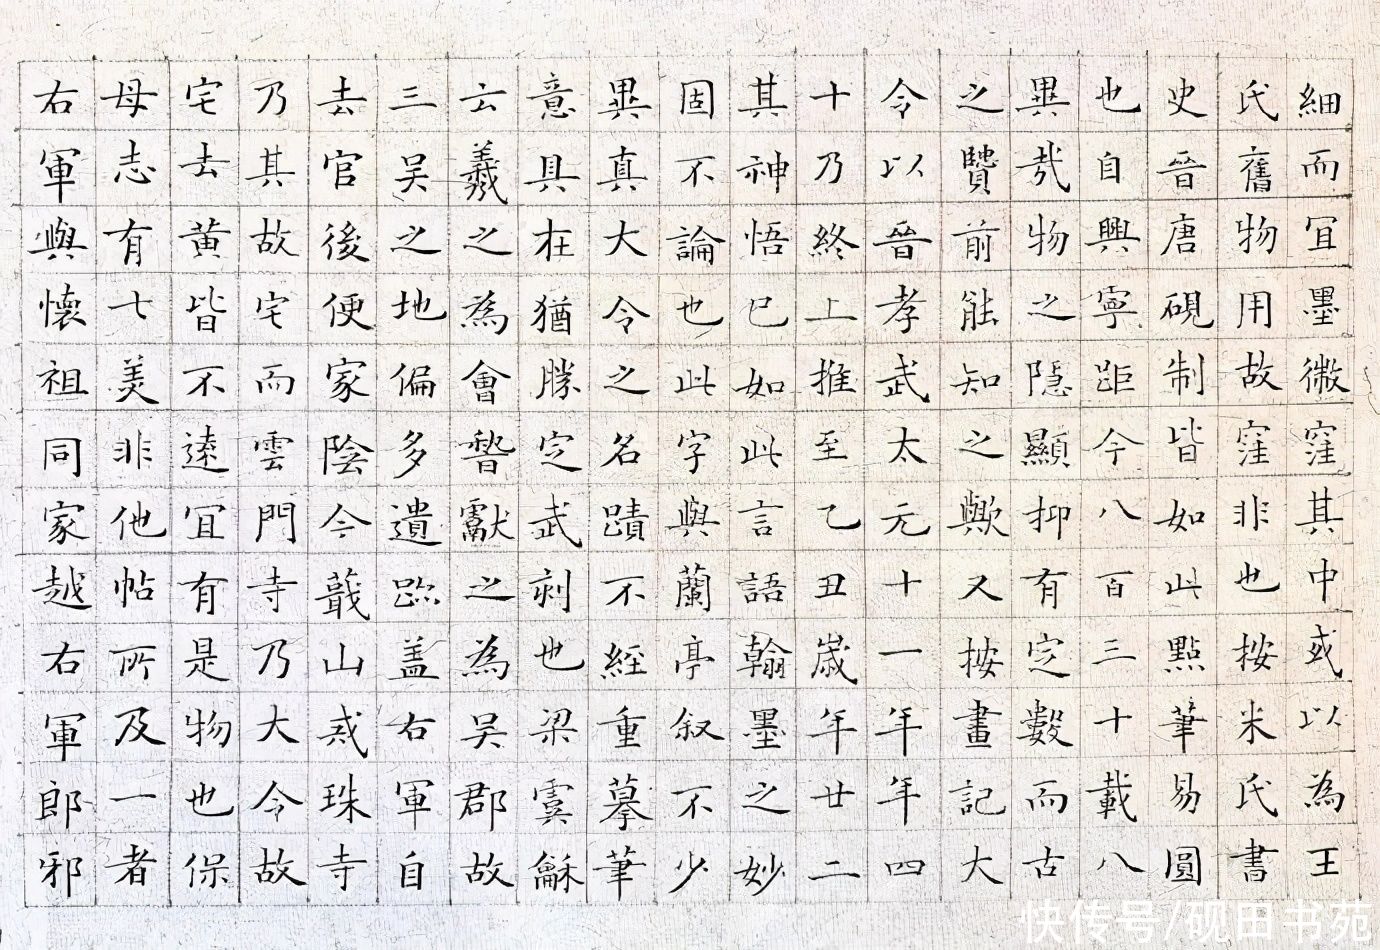 細而宜墨微窪其中或以為王
氏舊物用故窪非也按米氏書
史晉唐硯制皆如此點筆易圓
也自興寧距今八百三十載八
異哉物之隱顯抑有定數而古
之賢前能知之歟又按畫記大
令以晉孝武太元十一年年四
十乃終上推至乙丑歲年廿二
其神悟已如此言語翰墨之妙
固不論也此字與蘭亭叙不少
異真大令之名蹟不經重摹筆
意具在猶勝定武刻也梁虞龢
云羲之為會稽獻之為吳郡故
三吳之地偏多遺跡蓋右軍自
去官後便家陰今蕺山戒珠寺
乃其故宅而雲門寺乃大令故
宅去黄皆不遠宜有是物也保
母志有七美非他帖所及一者
右軍與懷祖同家越右軍郎邪
快传号/砚田书苑